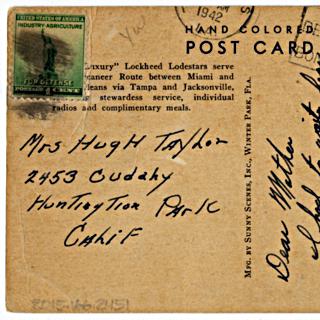 UNITED STATES OF AMERICA
INDUSTRY-AGRICULTURE
FOR DEFENSE
1942
HAND COLORED
POST CARD
Luxury" Lockheed Lodestars serve
caneer Route between Miami and
leans via Tampa and Jacksonville,
stewardess service, individual
radios and complimentary meals.
Mrs Hugh Taylor
2453 Cudahy
Huntington Park
Calif
MFG. BY SUNNY SCENES, INC., WINTER PARK, FLA.
Dear Mother
I had to wait